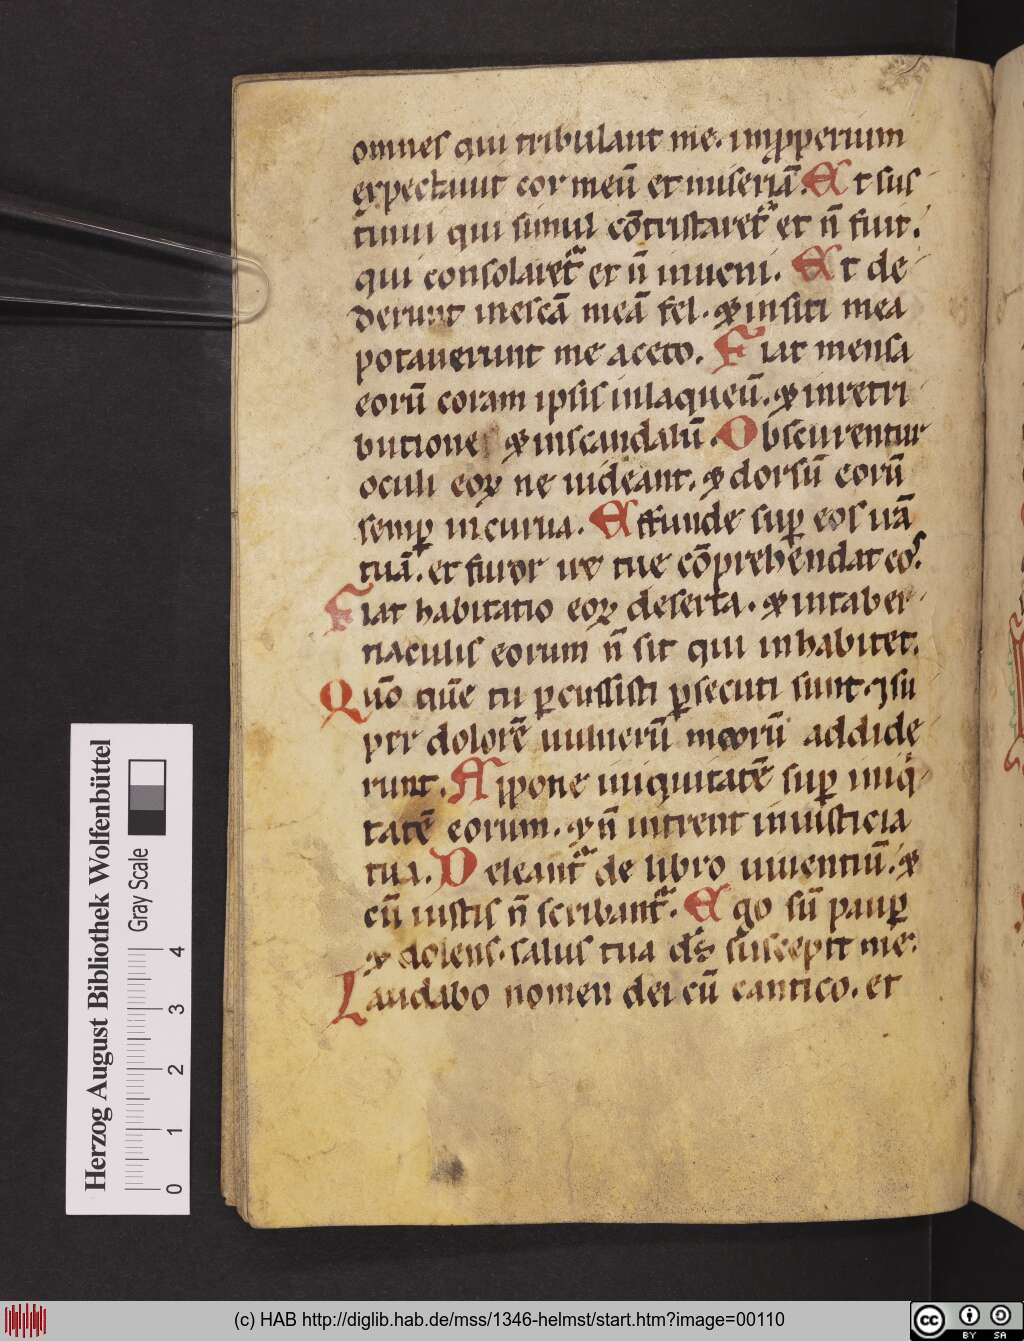 omnes qui tribulant me. imp̱perium
expectauit cor meū et miseriā Et sus
tinui qui simul cōtristaretᷓ et n̄ fuit.
qui consolaretᷓ et n̄ inueni. Et de
derunt inescā meā fel. ⁊ insiti mea
potauerunt me aceto. Fiat mensa
eorū coram ipsis inlaqueū. ⁊ inretri
butiones ⁊ inscandalū. Obscurentur
oculi eoꝝ ne uideant. ⁊ dorsū eorū
semꝑ incurua. Effunde suꝑ eos irā
tuā. et furor ire tue cōprehendat eos.
Fiat habitatio eoꝝ deserta. ⁊ intaber
naculis eorum n̄ sit qui inhabitet.
Quō quē tu ꝑcussisti ꝑsecuti sunt. ⁊ su
per dolorē uulnerū meorū addide
runt. Appone iniquitatē suꝑ iniq̇
tatē eorum. ⁊ n̄ intrent iniusticia
tua. Deleantᷓ de libro uiuentiū. ⁊
cū iustis n̄ scribantᷓ. Ego sū pauꝑ
⁊ dolens. salus tua ds̄ suscepit me.
Laudabo nomen dei cū cantico. et
Herzog August Bibliothek Wolfenbüttel
Gray Scale
0 1 2 3 4
(c) HAB http://diglib.hab.de/mss/1346-helmst/start.htm?image=00110
cc BY SA